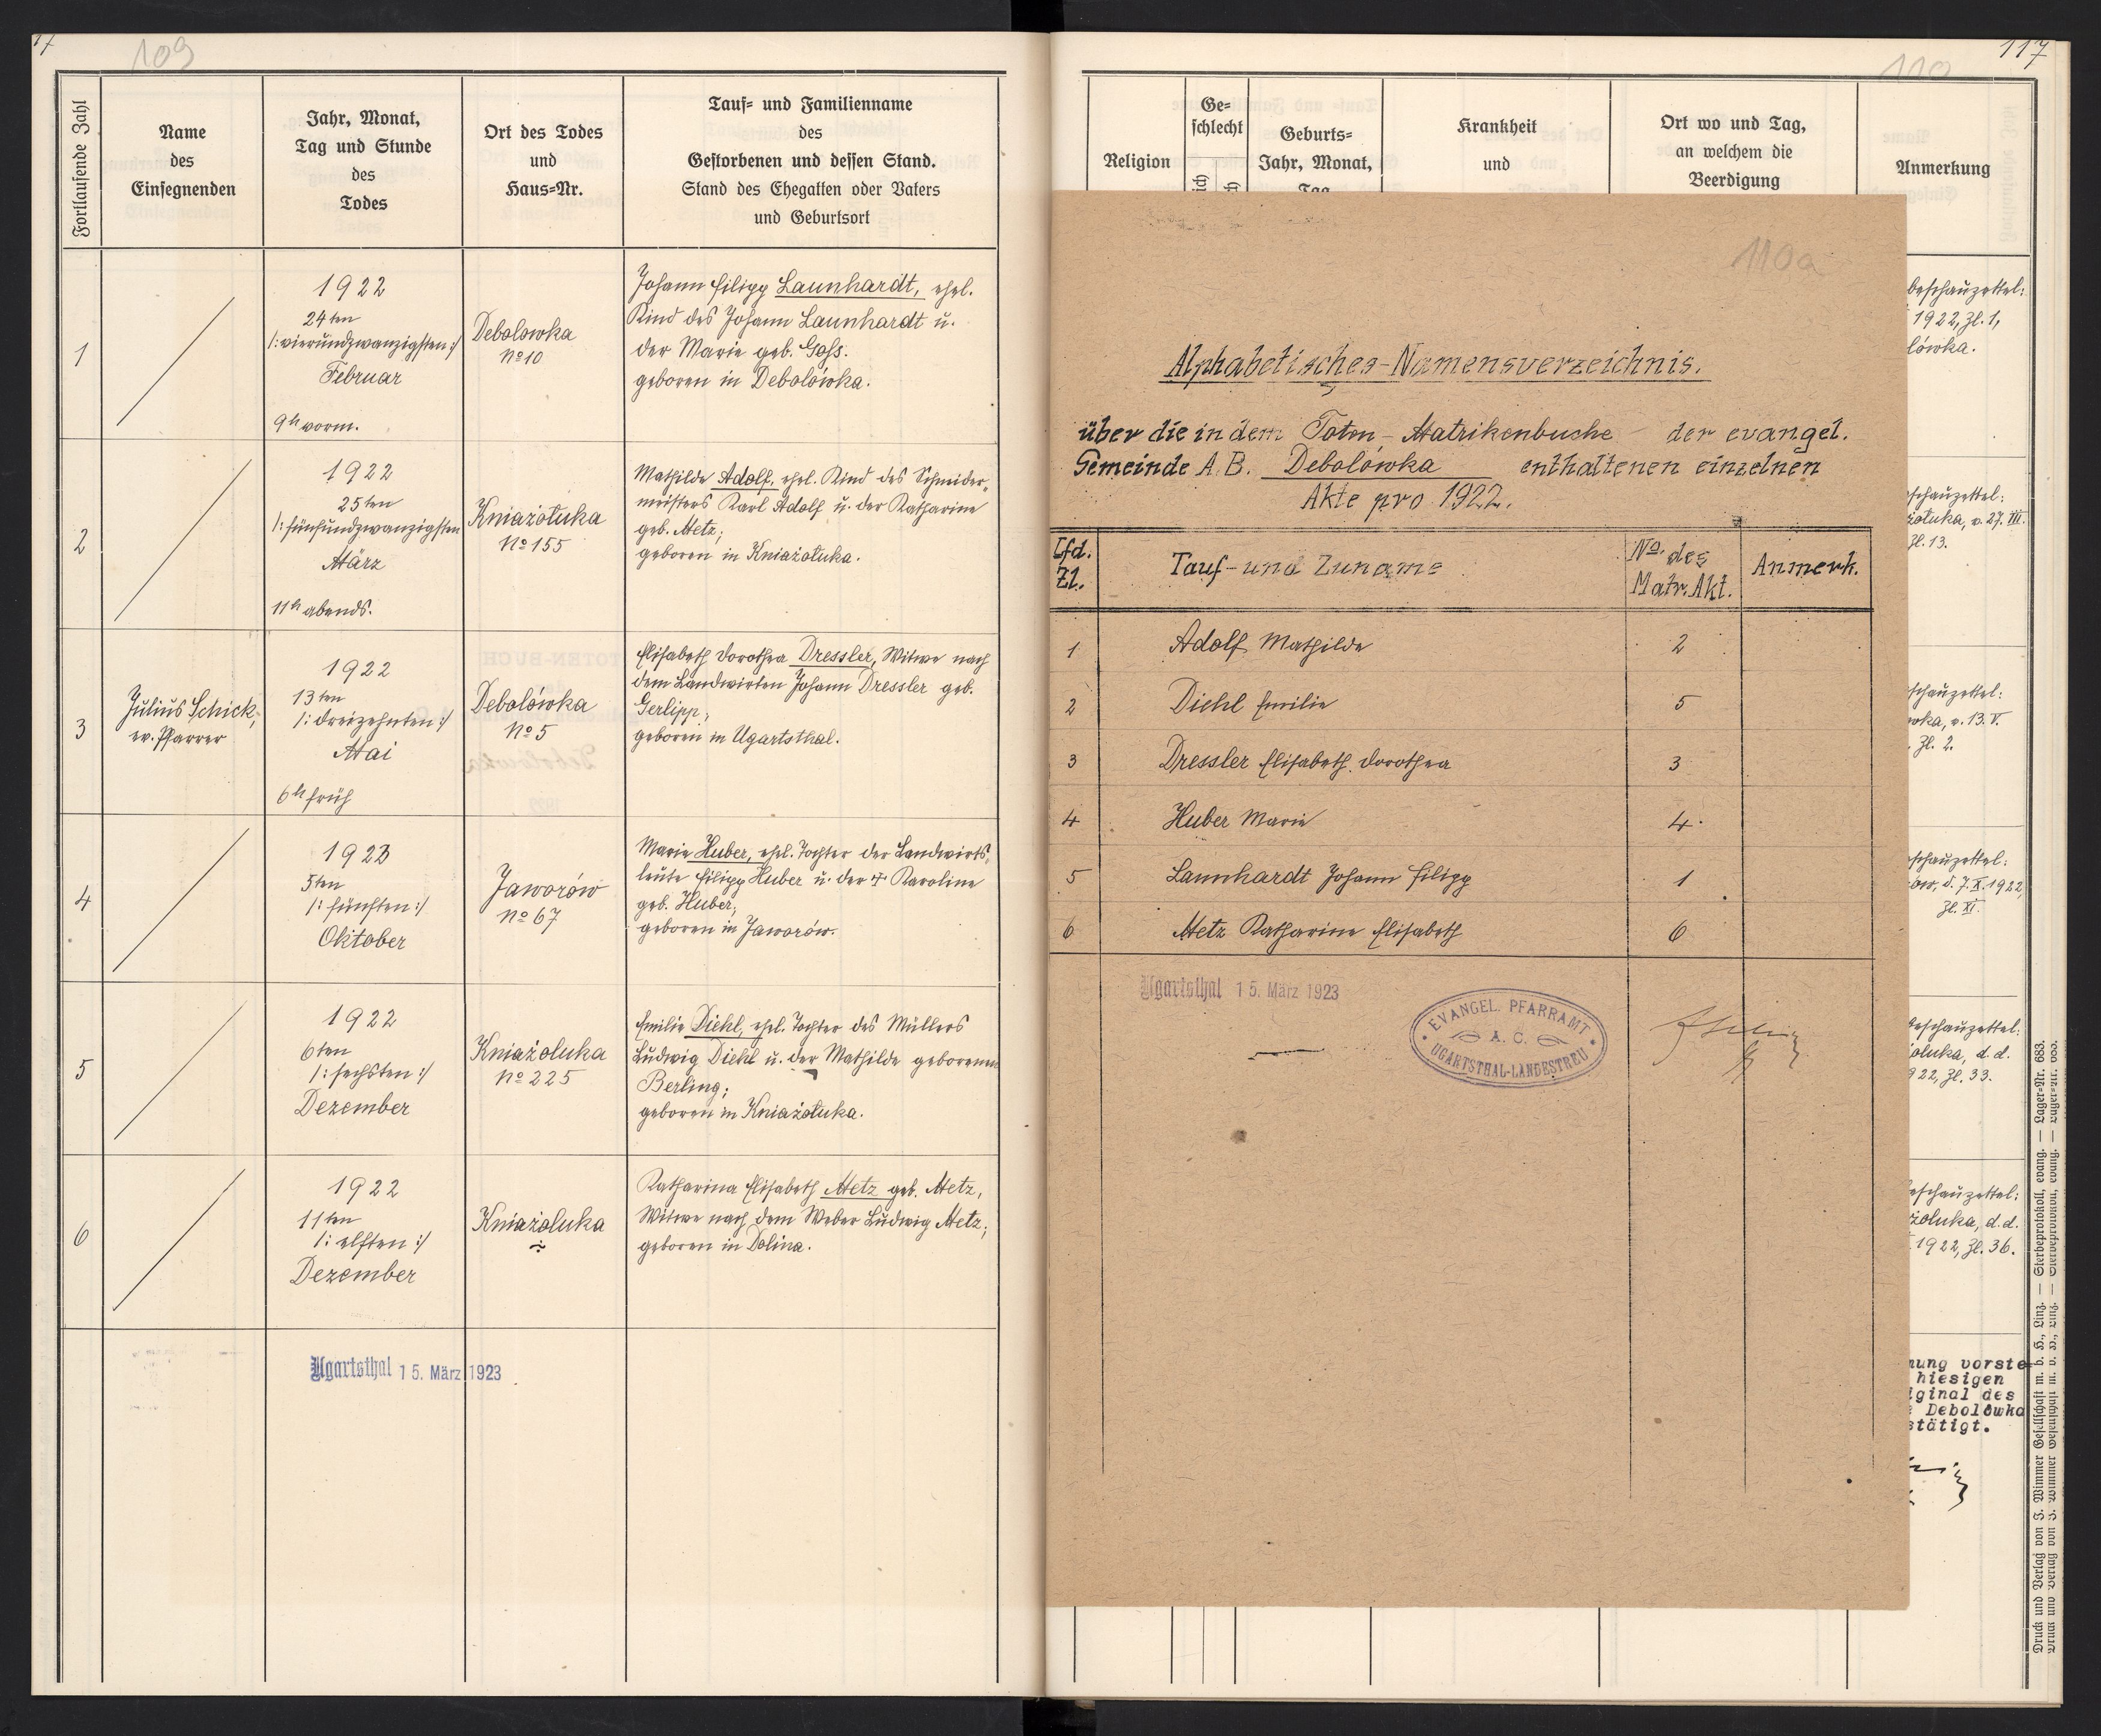 17
109
Fortlaufende Zahl
Name
des
Einsegnenden
Jahr, Monat,
Tag und Stunde
des
Todes
Ort des Todes
und
Haus=Nr.
Tauf= und Familienname
des
Gestorbenen und dessen Stand.
Stand des Ehegatten oder Vaters
und Geburtsort
1
1922
24ten
/:vierundzwanzigsten:/
Februar
9h vorm.
Debolowka
No 10
Johann Filipp Launhardt, ehel.
Kind des Johann Launhardt u.
der Marie geb. Goss.
geboren in Debolówka.
2
1922
25ten
/:fünfundzwanzigsten
März
11h abends.
Kniażołuka
No 155
Mathilde Adolf, ehel. Kind des Schneider=
meisters Karl Adolf u. der Katharine
geb. Metz;
geboren in Kniażołuka.
3
Julius Schick,
ev. Pfarrer
1922
13ten
/:dreizehnten:/
Mai
6h früh
Debolówka
No 5
Elisabeth Dorothea Dressler, Witwe nach
dem Landwirten Johann Dressler geb.
Gerlipp;
geboren in Ugartsthal.
4
1923
5ten
/:fünften:/
Oktober
Jaworów
No 67
Marie Huber, ehel. Tochter der Landwirts=
leute Filipp Huber u. der + Karoline
geb. Huber;
geboren in Jaworów.
5
1922
6ten
/:sechsten:/
Dezember
Kniażoluka
No 225
Emilie Diehl, ehel. Tochter des Müllers
Ludwig Diehl u. der Mathilde geborenen
Berling;
geboren in Kniażołuka.
6
1922
11ten
/:elften:/
Dezember
Kniażoluka
Katharina Elisabeth Metz geb. Metz,
Witwe nach dem Weber Ludwig Metz;
geboren in Dolina.
Ugartsthal 15. März 1923
117
110
Religion
Ge=
schlecht
Geburts=
Jahr, Monat,
Tag
Krankheit
und
Ort wo und Tag,
an welchem die
Beerdigung
Anmerkung
110a
Alphabetisches-Namensverzeichnis.
über die in dem Toten-Matrikenbuche der evangel.
Gemeinde A.B. Debolówka enthaltenen einzelnen
Akte pro 1922.
Lfd. Zl.
Tauf-und Zuname
No. des
Matr. Akt.
Anmerk.
1 Adolf Mathilde 2
2 Diehl Emilie 5
3 Dressler Elisabeth Dorothea 3
4 Huber Marie 4
5 Launhardt Johann Filipp 1
6 Metz Katharine Elisabeth 6
Ugartsthal 15. März 1923
EVANGEL. PFARRAMT
A. C.
UGARTSTHAL-LANDESTREU
beschauzettel:
1922, Zl. 1,
lówka.
schauzettel:
żoluka, v. 27. III.
Zl. 13.
schauzettel:
wka, v. 13. V.
Zl. 2.
schauzettel:
ów, d. 7. X. 1922,
Zl. XI.
beschauzettel:
oluka, d. d.
922, Zl. 33.
eschauzettel:
żoluka, d. d.
1922, Zl. 36.
nung vorste
hiesigen
iginal des
Debolówka
stätigt.
Druck und Verlag von J. Wimmer Gesellschaft m. b. H., Linz. — Sterbeprotokoll, evang. — Lager=Nr. 683.